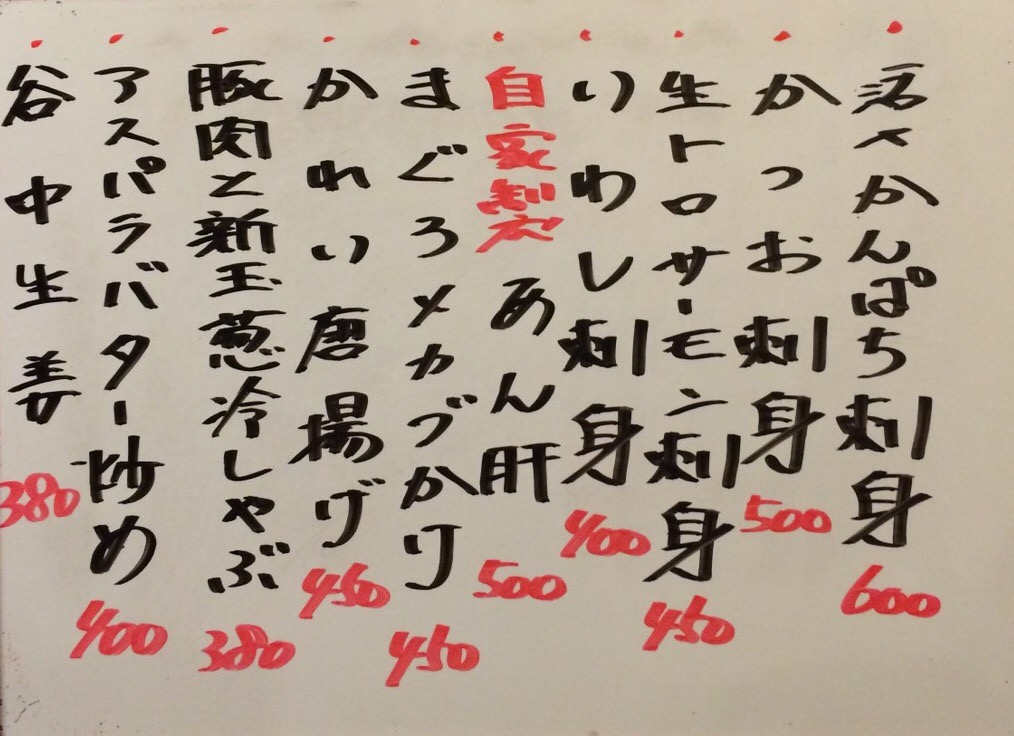 活〆かんぱち刺身 600
かつお刺身 500
生トロサーモン刺身 450
いわし刺身 400
自家製あん肝 500
まぐろメカブづかり 450
かれい唐揚げ 450
豚肉と新玉葱冷しゃぶ 380
アスパラバター炒め 400
谷中生姜 380